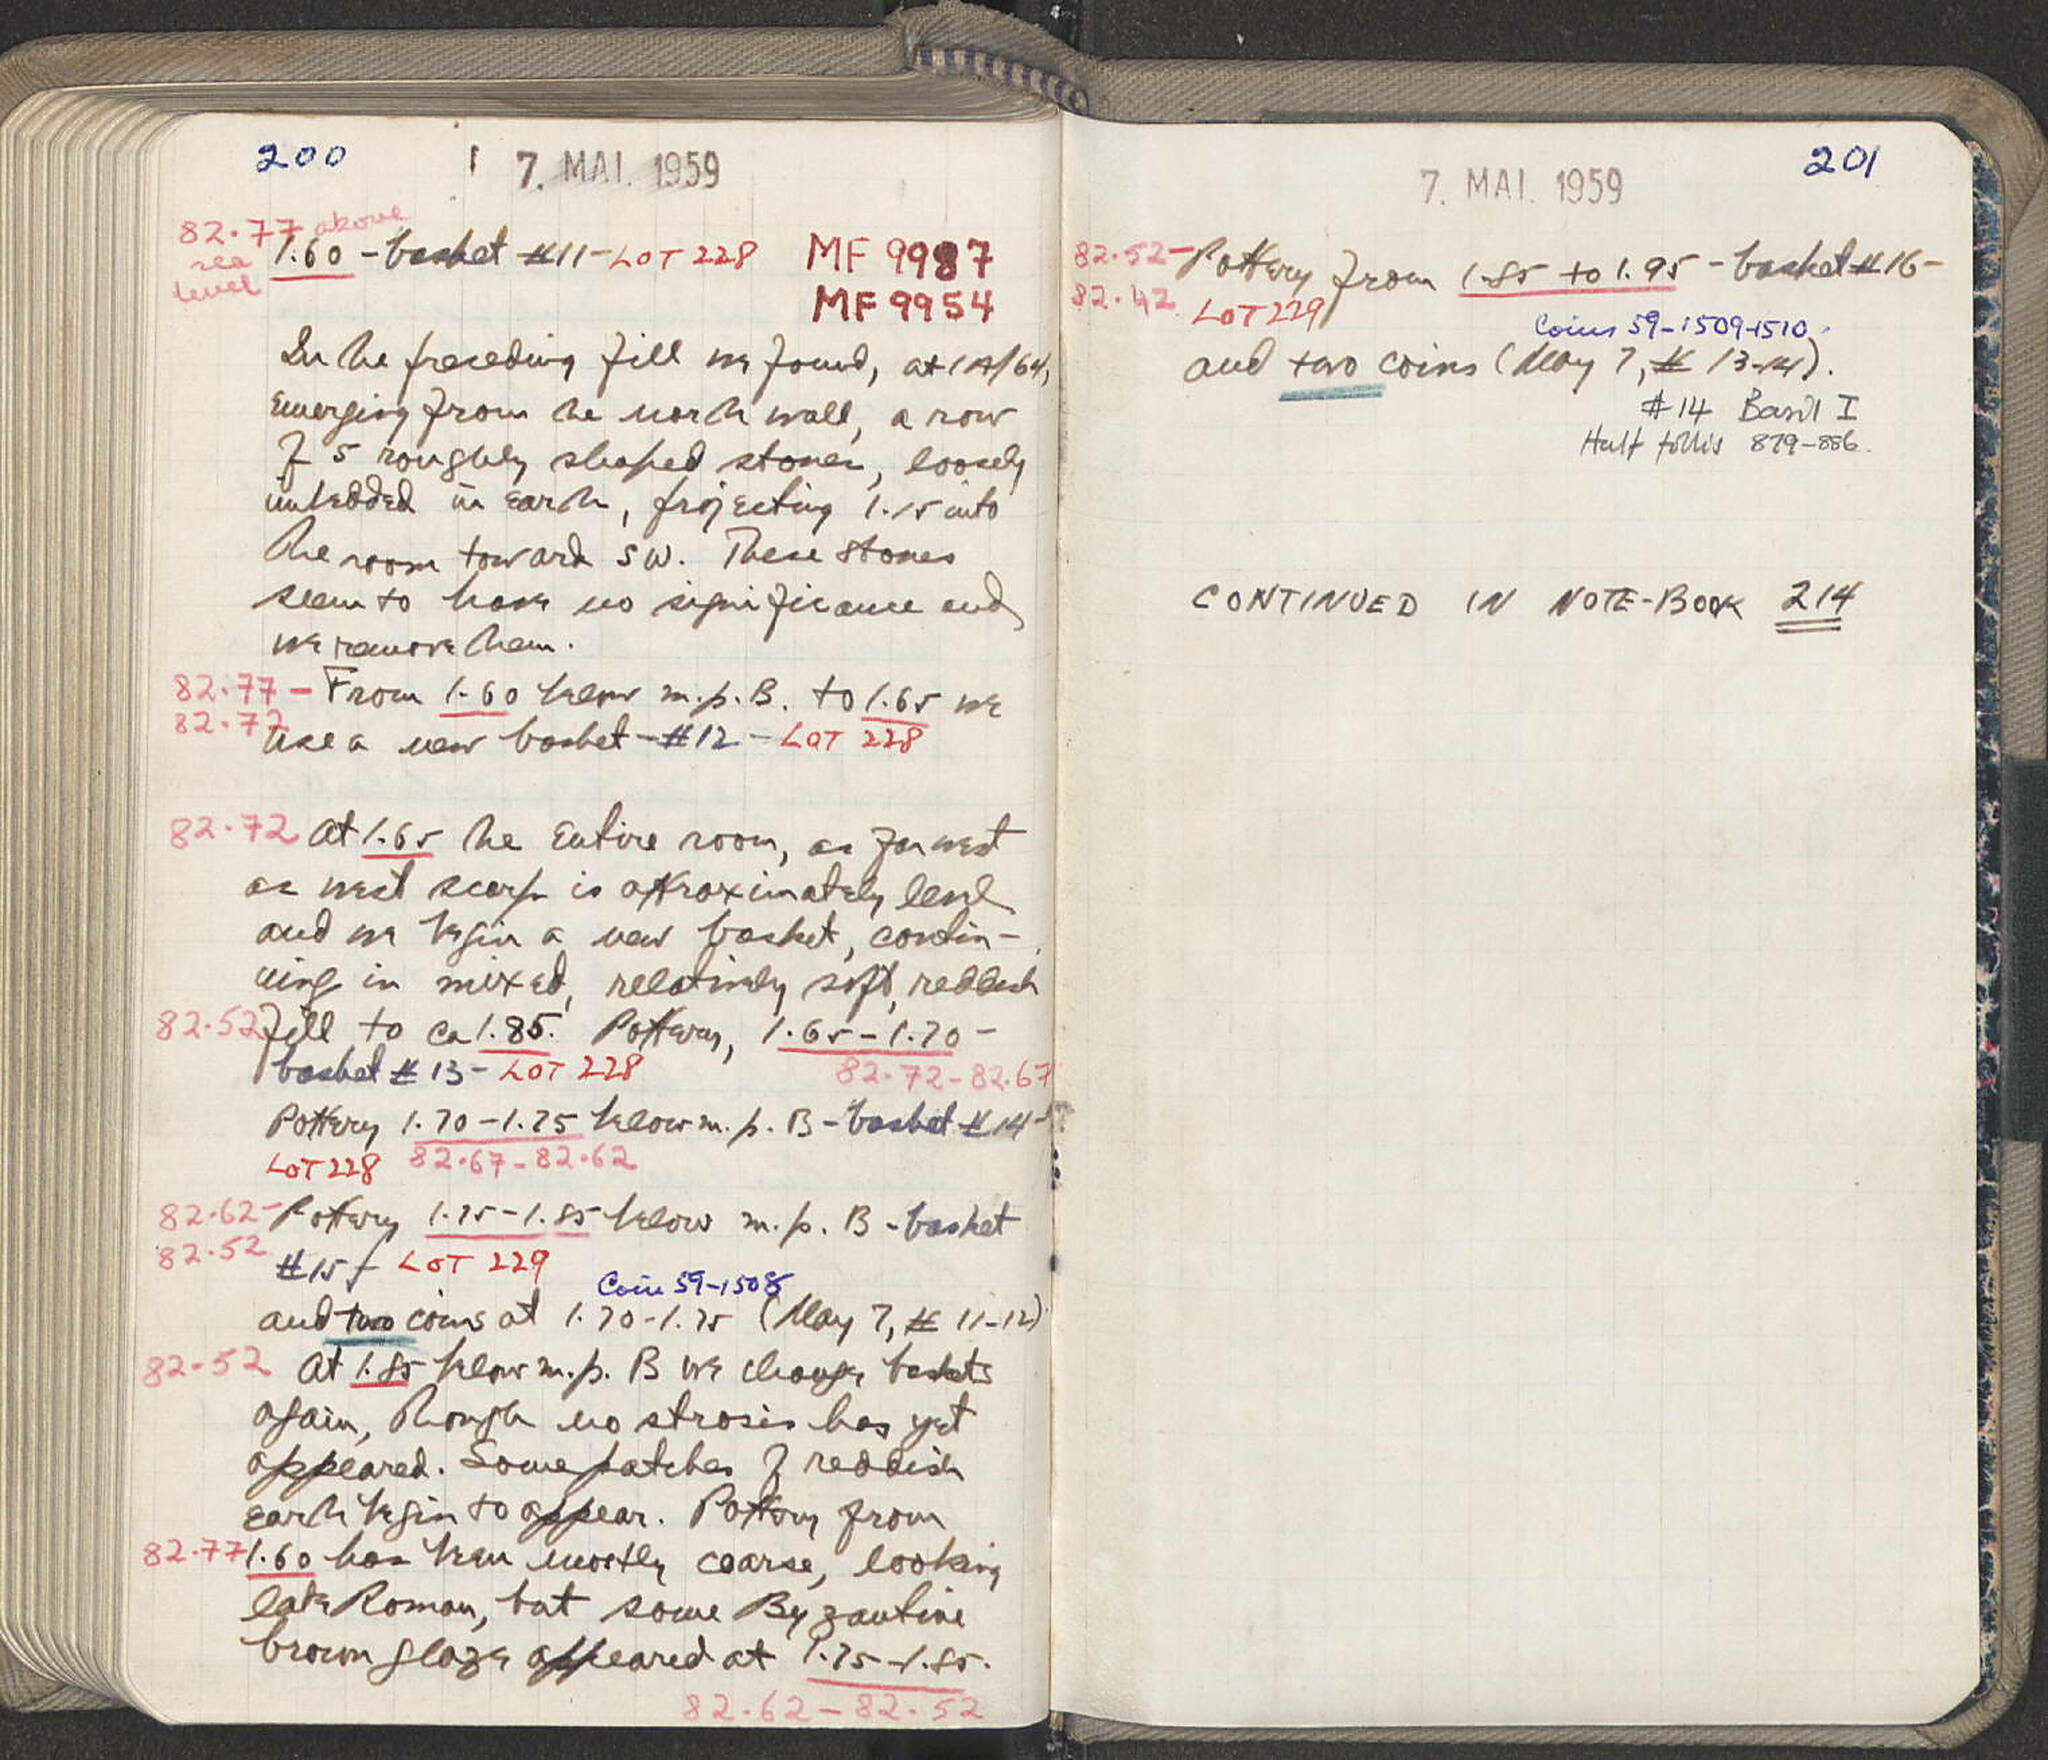 200
7. MAI. 1959
82.77 above
sea
level
1.60 - basket #11 - LOT 228
MF 9987
MF 9954
In the preceding fill we found, at
emerging from the north wall, a row
of 5 roughly shaped stones, loosely
imbedded in earth, projecting 1.15 into
the room toward SW. These stones
seem to have no significance and
we remove them.
82.77 - From 1.60 below m.p. B. to 1.65 we
82.72 use a new basket - #12 - LOT 228
82.72 At 1.65 the entire room, as far west
as west scarp is approximately level
and we begin a new basket, contin-
uing in mixed, relatively soft, reddish
82.52 fill to ca 1.85. Pottery, 1.65 - 1.70 -
basket #13 - LOT 228 82.72 - 82.67
Pottery 1.70 - 1.75 below m.p. B - basket #14 -
LOT 228 82.67 - 82.62
82.62 - Pottery 1.75 - 1.85 below m.p. B - basket
82.52 #15 - LOT 229
Coin 59-1508
and two coins at 1.70 - 1.75 (May 7, # 11-12)
82.52 At 1.85 below m.p. B we change baskets
again, though no strosis has yet
appeared. Some patches of reddish
earth begin to appear. Pottery from
82.77 1.60 has been mostly coarse, looking
late Roman, but some Byzantine
brown glaze appeared at 1.75 - 1.85.
82.62 - 82.52
201
7. MAI. 1959
82.52 - Pottery from 1.85 to 1.95 - basket #16 -
82.42 LOT 229
Coins 59-1509-1510.
and two coins (May 7, # 13-14).
#14 Basil I
Half follis 879-886.
CONTINUED IN NOTE-BOOK 214